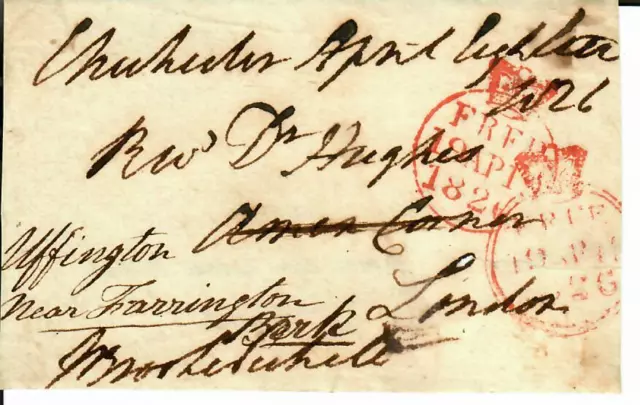 Chichester April Eighteen
1826
Revd Dr Hughes
Amen Corner
Uffington
London
Near Farrington
Berk
FREE
18 AP
182
FREE
19 AP
26